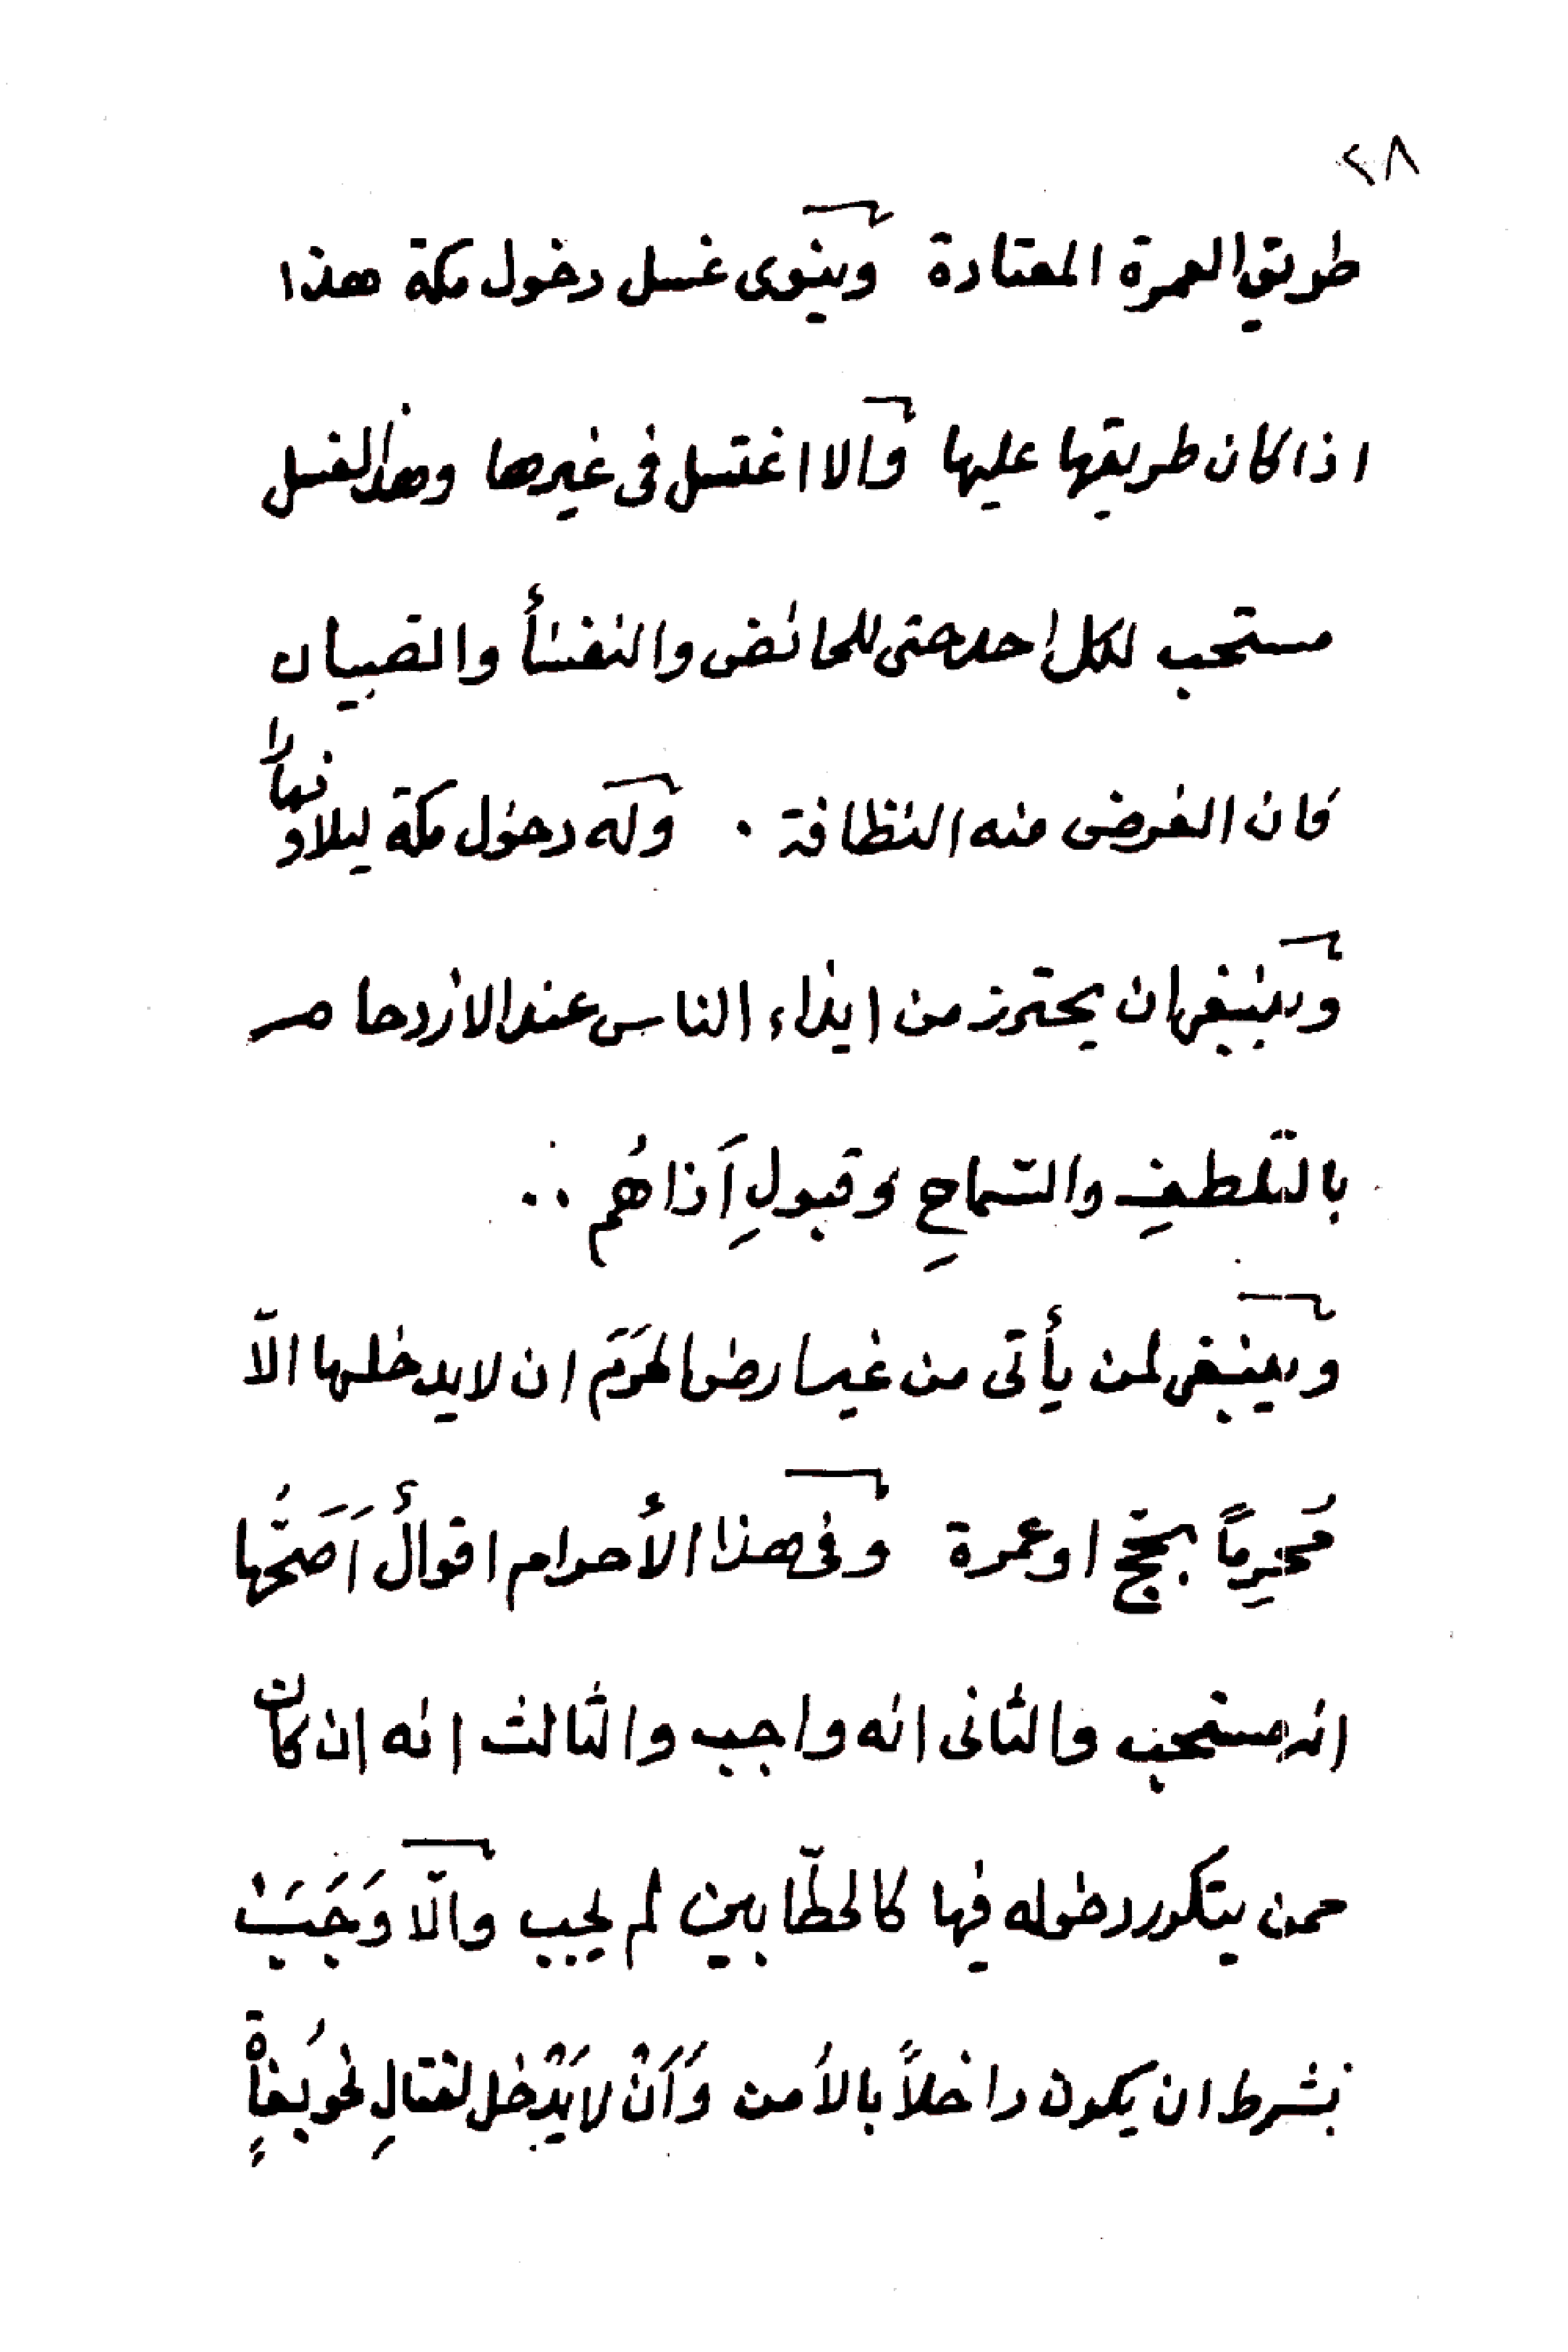 ٢٨
طريق العمرة المعتادة وينوى غسل دخول مكة هذا
اذا كان طريقها عليها والا اغتسل فى غيرها وهذا الغسل
مستحب لكل احد حتى للحائض والنفسأ والصبيان
فان الغرض منه النظافة . وله دخول مكة ليلا ونهارا
وينبغى ان يحترز من ايذاء الناس عند الازدحام
بالتلطفِ والتسماحِ وقبولِ آذاهُم ..
وينبغى لمن يأتى من غير ارض الحَرَم ان لا يدخلها الّا
مُحرِماً بحج او عمرة وفى هذا الأحرام اقوالٌ اَصَحُّها
انه مستحب والثانى انه واجب والثالث انه ان كان
ممن يتكرر دخوله فيها كالحطّابين لم يجب والّا وَجَبَتْ
بشرط ان يكون داخلاً بالأمن وَاَنْ لا يَدْخل لقتالِ نحو بُغاةٍ